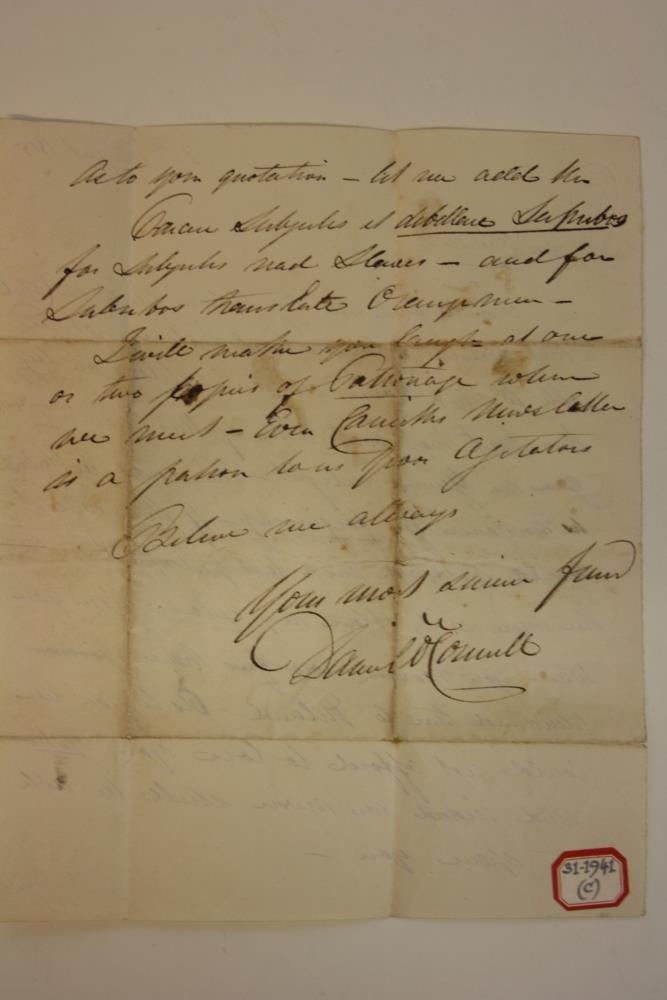 As to your quotation – let me add the
Parcere Subjectis et debellare Superbos
for Subjectis read Slaves – and for
Superbos translate Orangemen –
I will make you laugh at one
or two copies of Patronage when
we meet – Even Carrick's Newsletter
is a patron to us poor Agitators
Believe me always
Your most sincere friend
Daniel O'Connell
31-1941
(C)